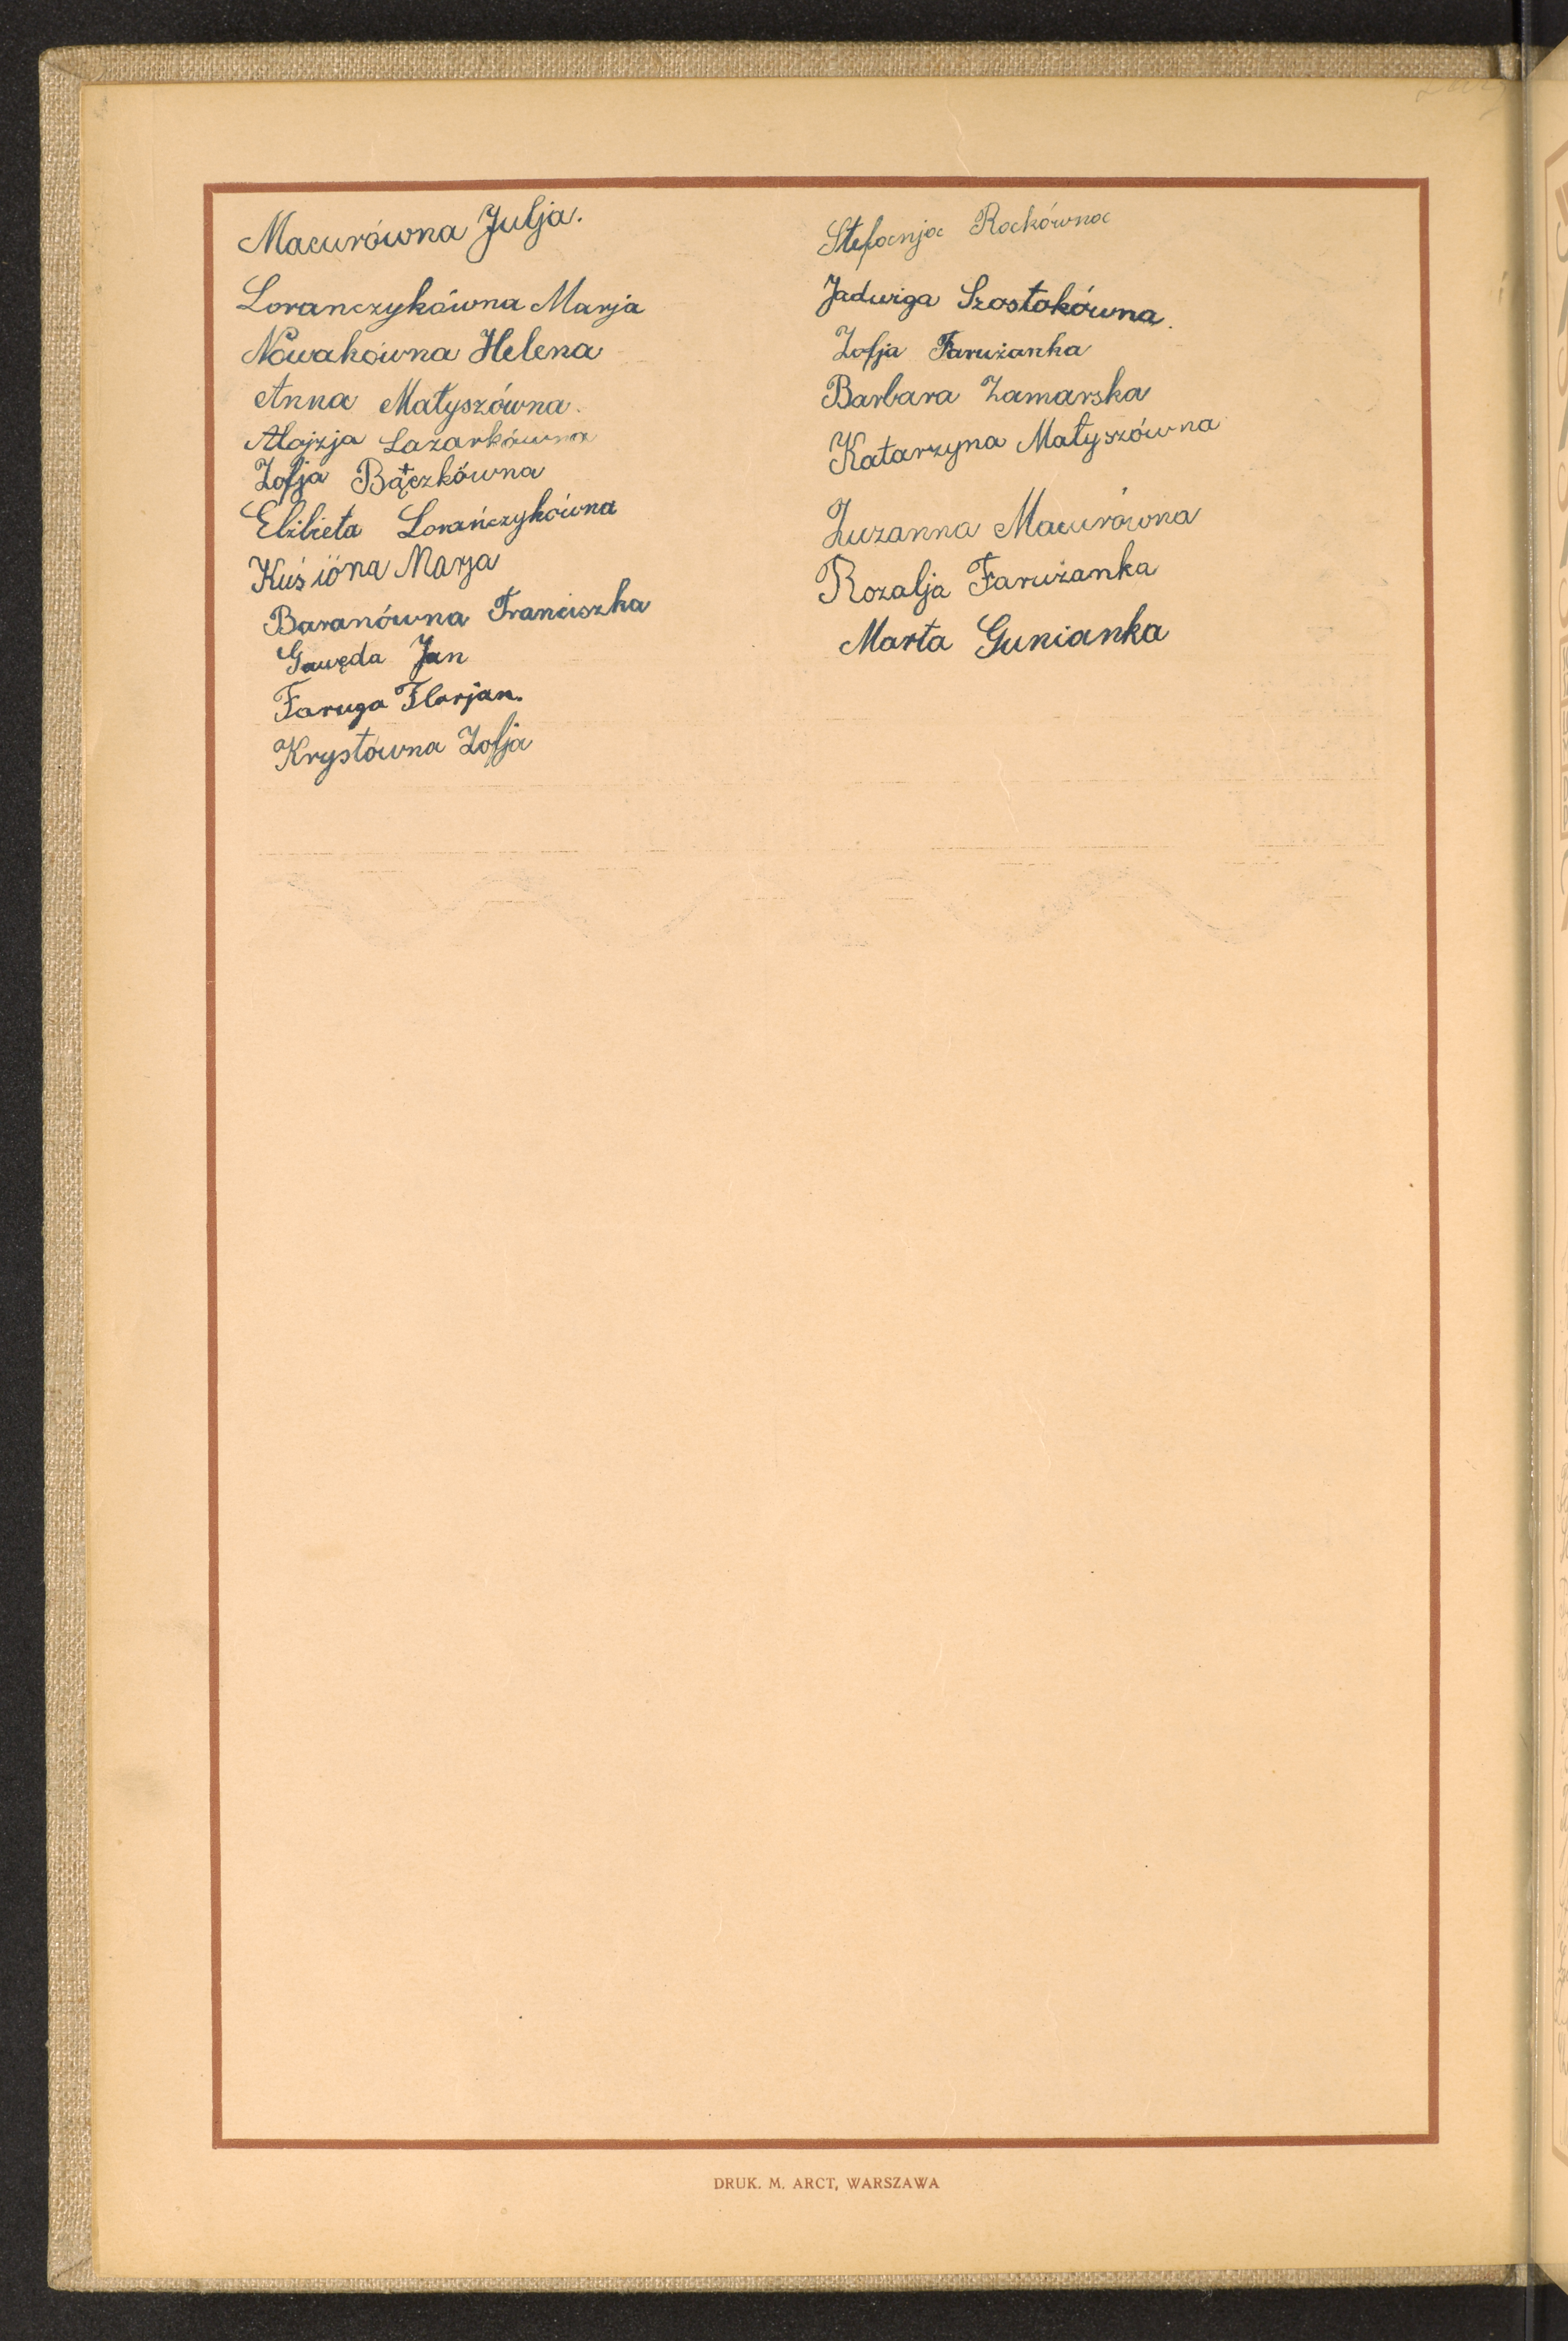 Macurówna Julja.
Loranczykówna Marja
Nowakówna Helena
Anna Matyszówna.
Alojzja Lazarkówna
Zofja Bączkówna
Elżbieta Lorańczykówna
Kuśióna Marja
Baranówna Franciszka
Gawęda Jan
Faruga Florjan.
Krystówna Zofja
Stefanja Rockówna
Jadwiga Szostokówna.
Zofja Farużanka
Barbara Zamarska
Katarzyna Matyszówna
Zuzanna Macurówna
Rozalja Farużanka
Marta Gunianka
DRUK. M. ARCT, WARSZAWA